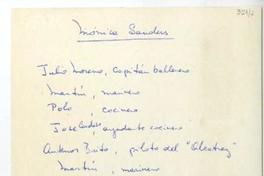 351/2
Mónica Sanders
Julio Moreno, Capitán ballenero
Martín, marinero
Polo, cocinero
José Carlos, ayudante cocinero
Antenor Brito, piloto del "Alcatraz"
Martín, marinero